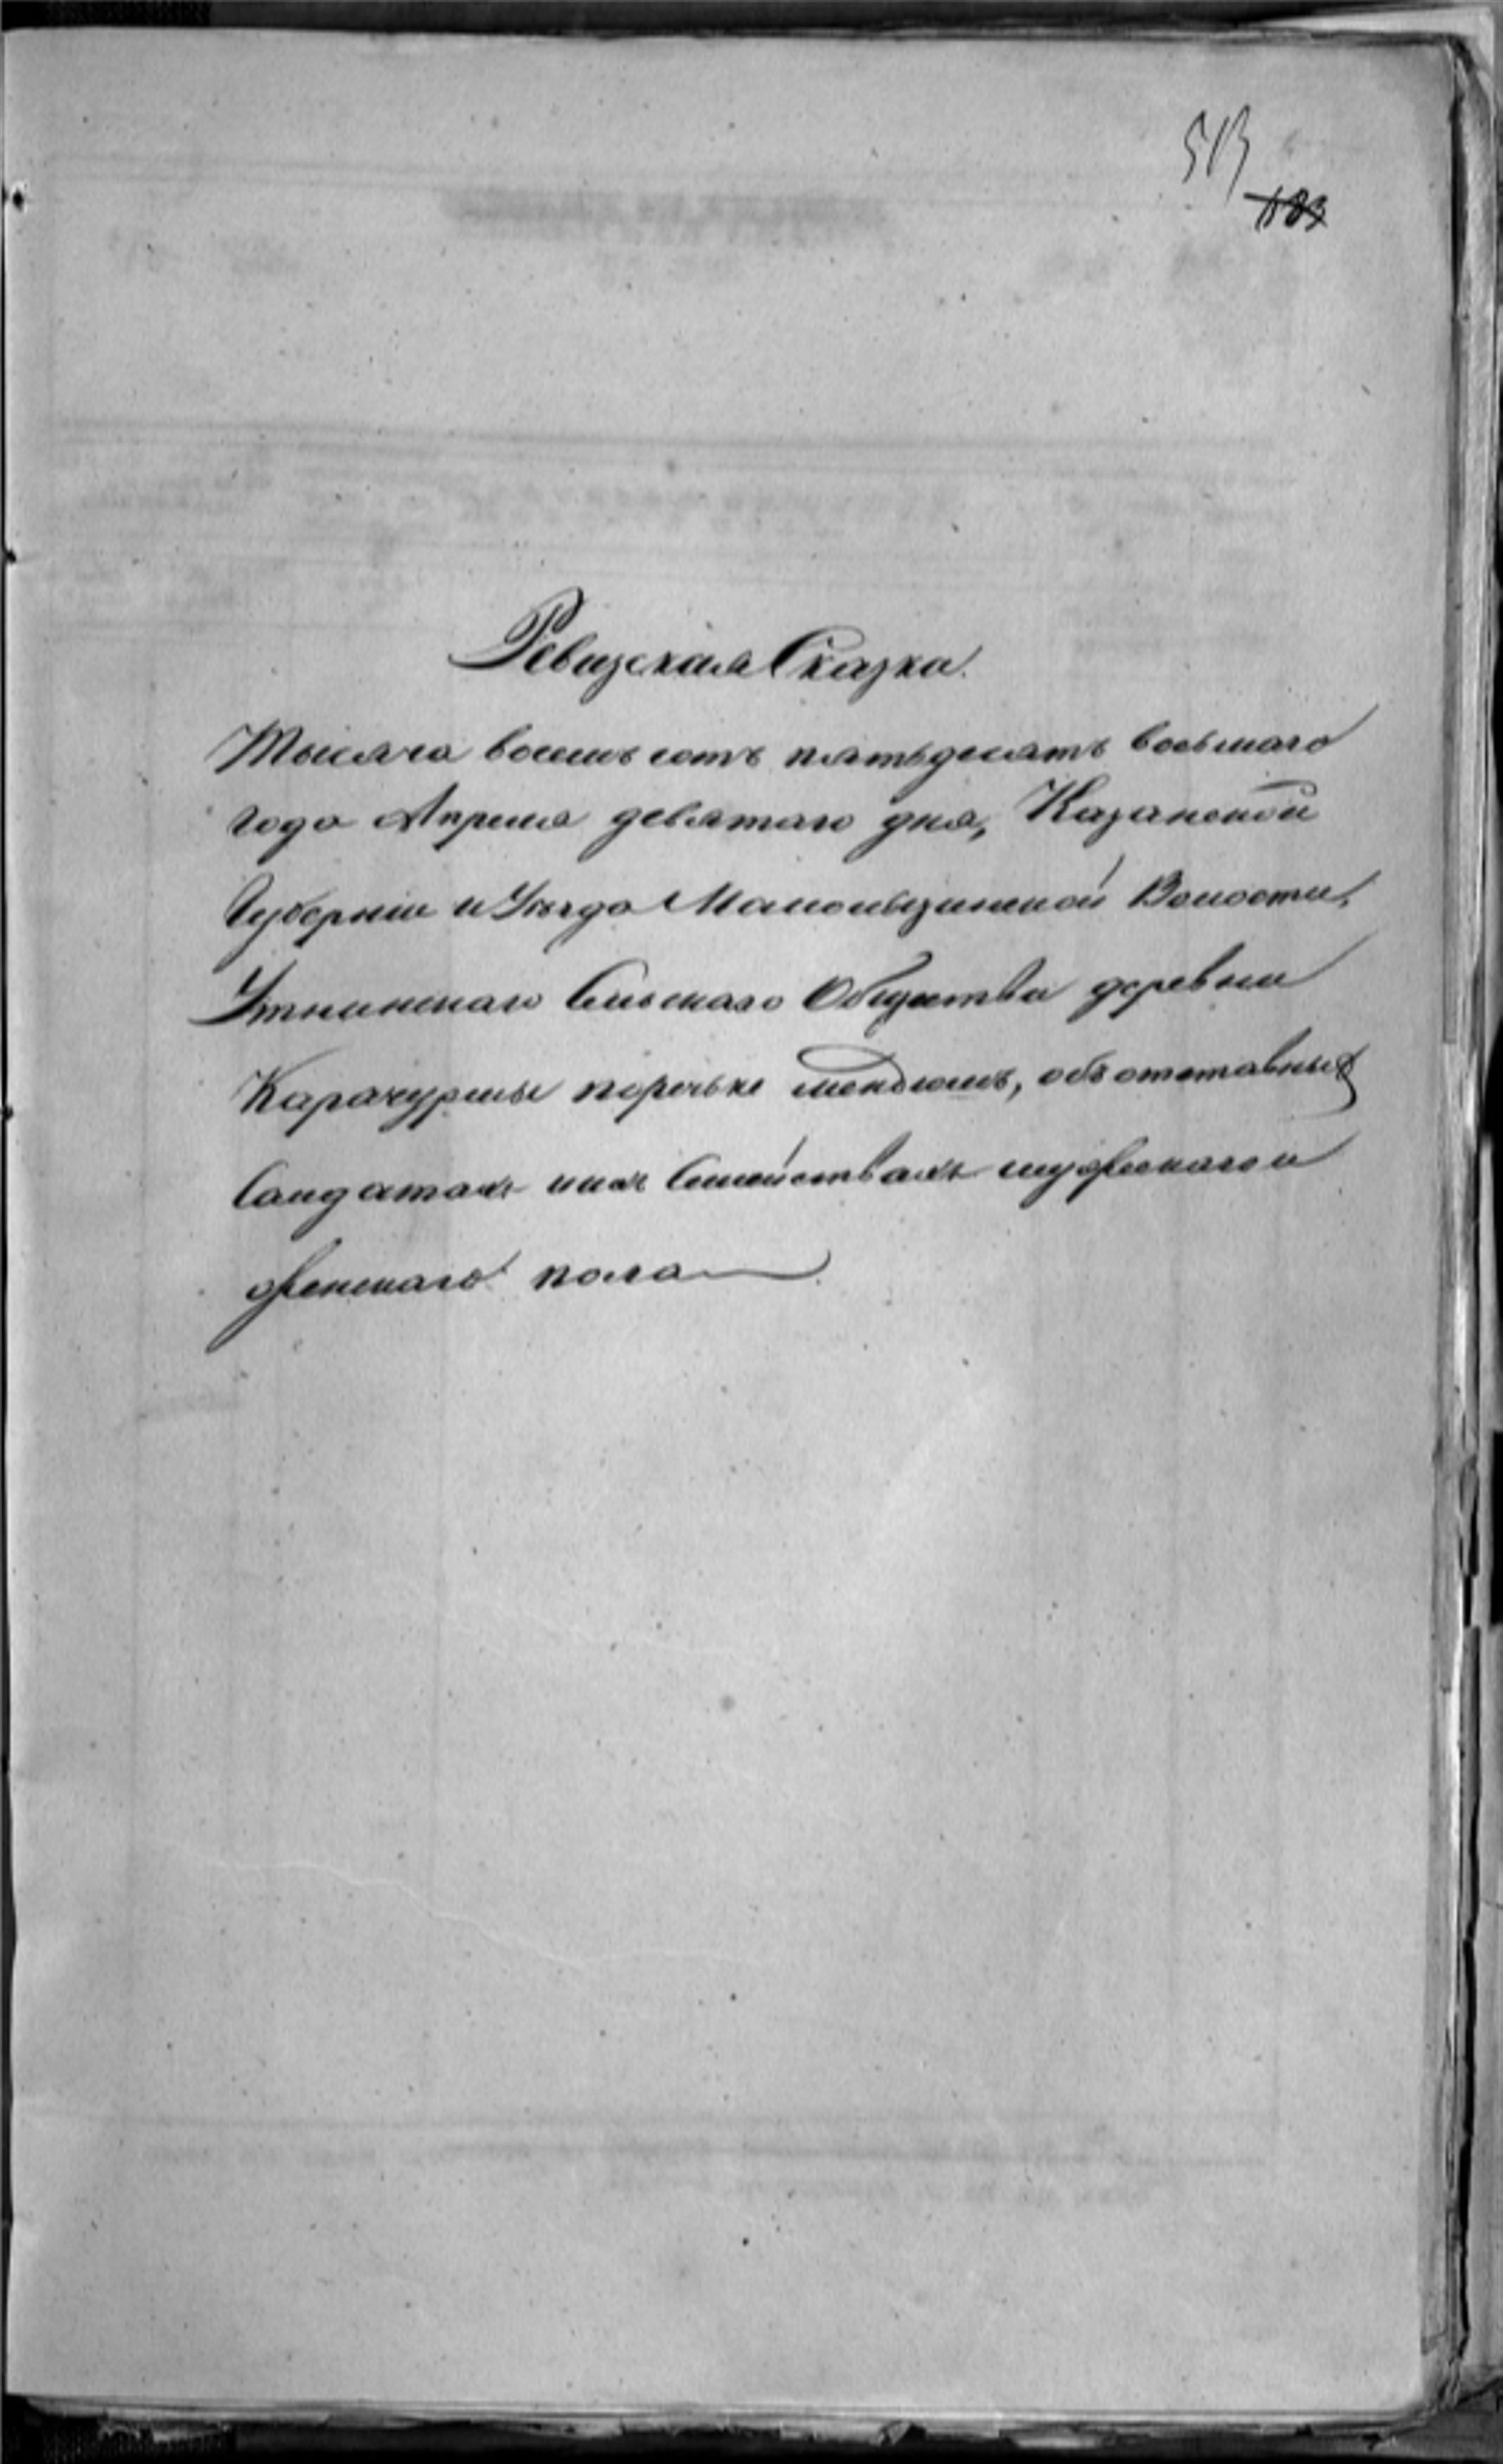 513
183
Ревизская Сказка.
Тысяча восемь сотъ пятьдесятъ восьмаго
года Апреля девятаго дня, Казанской
Губерніи и Уезда Малокызинской Волости,
Утнинскаго Сельскаго Общества деревни
Карачурмы поречьке, объ отставныхъ
Салдатахъ ихъ Семействахъ мужескаго и
женскаго пола